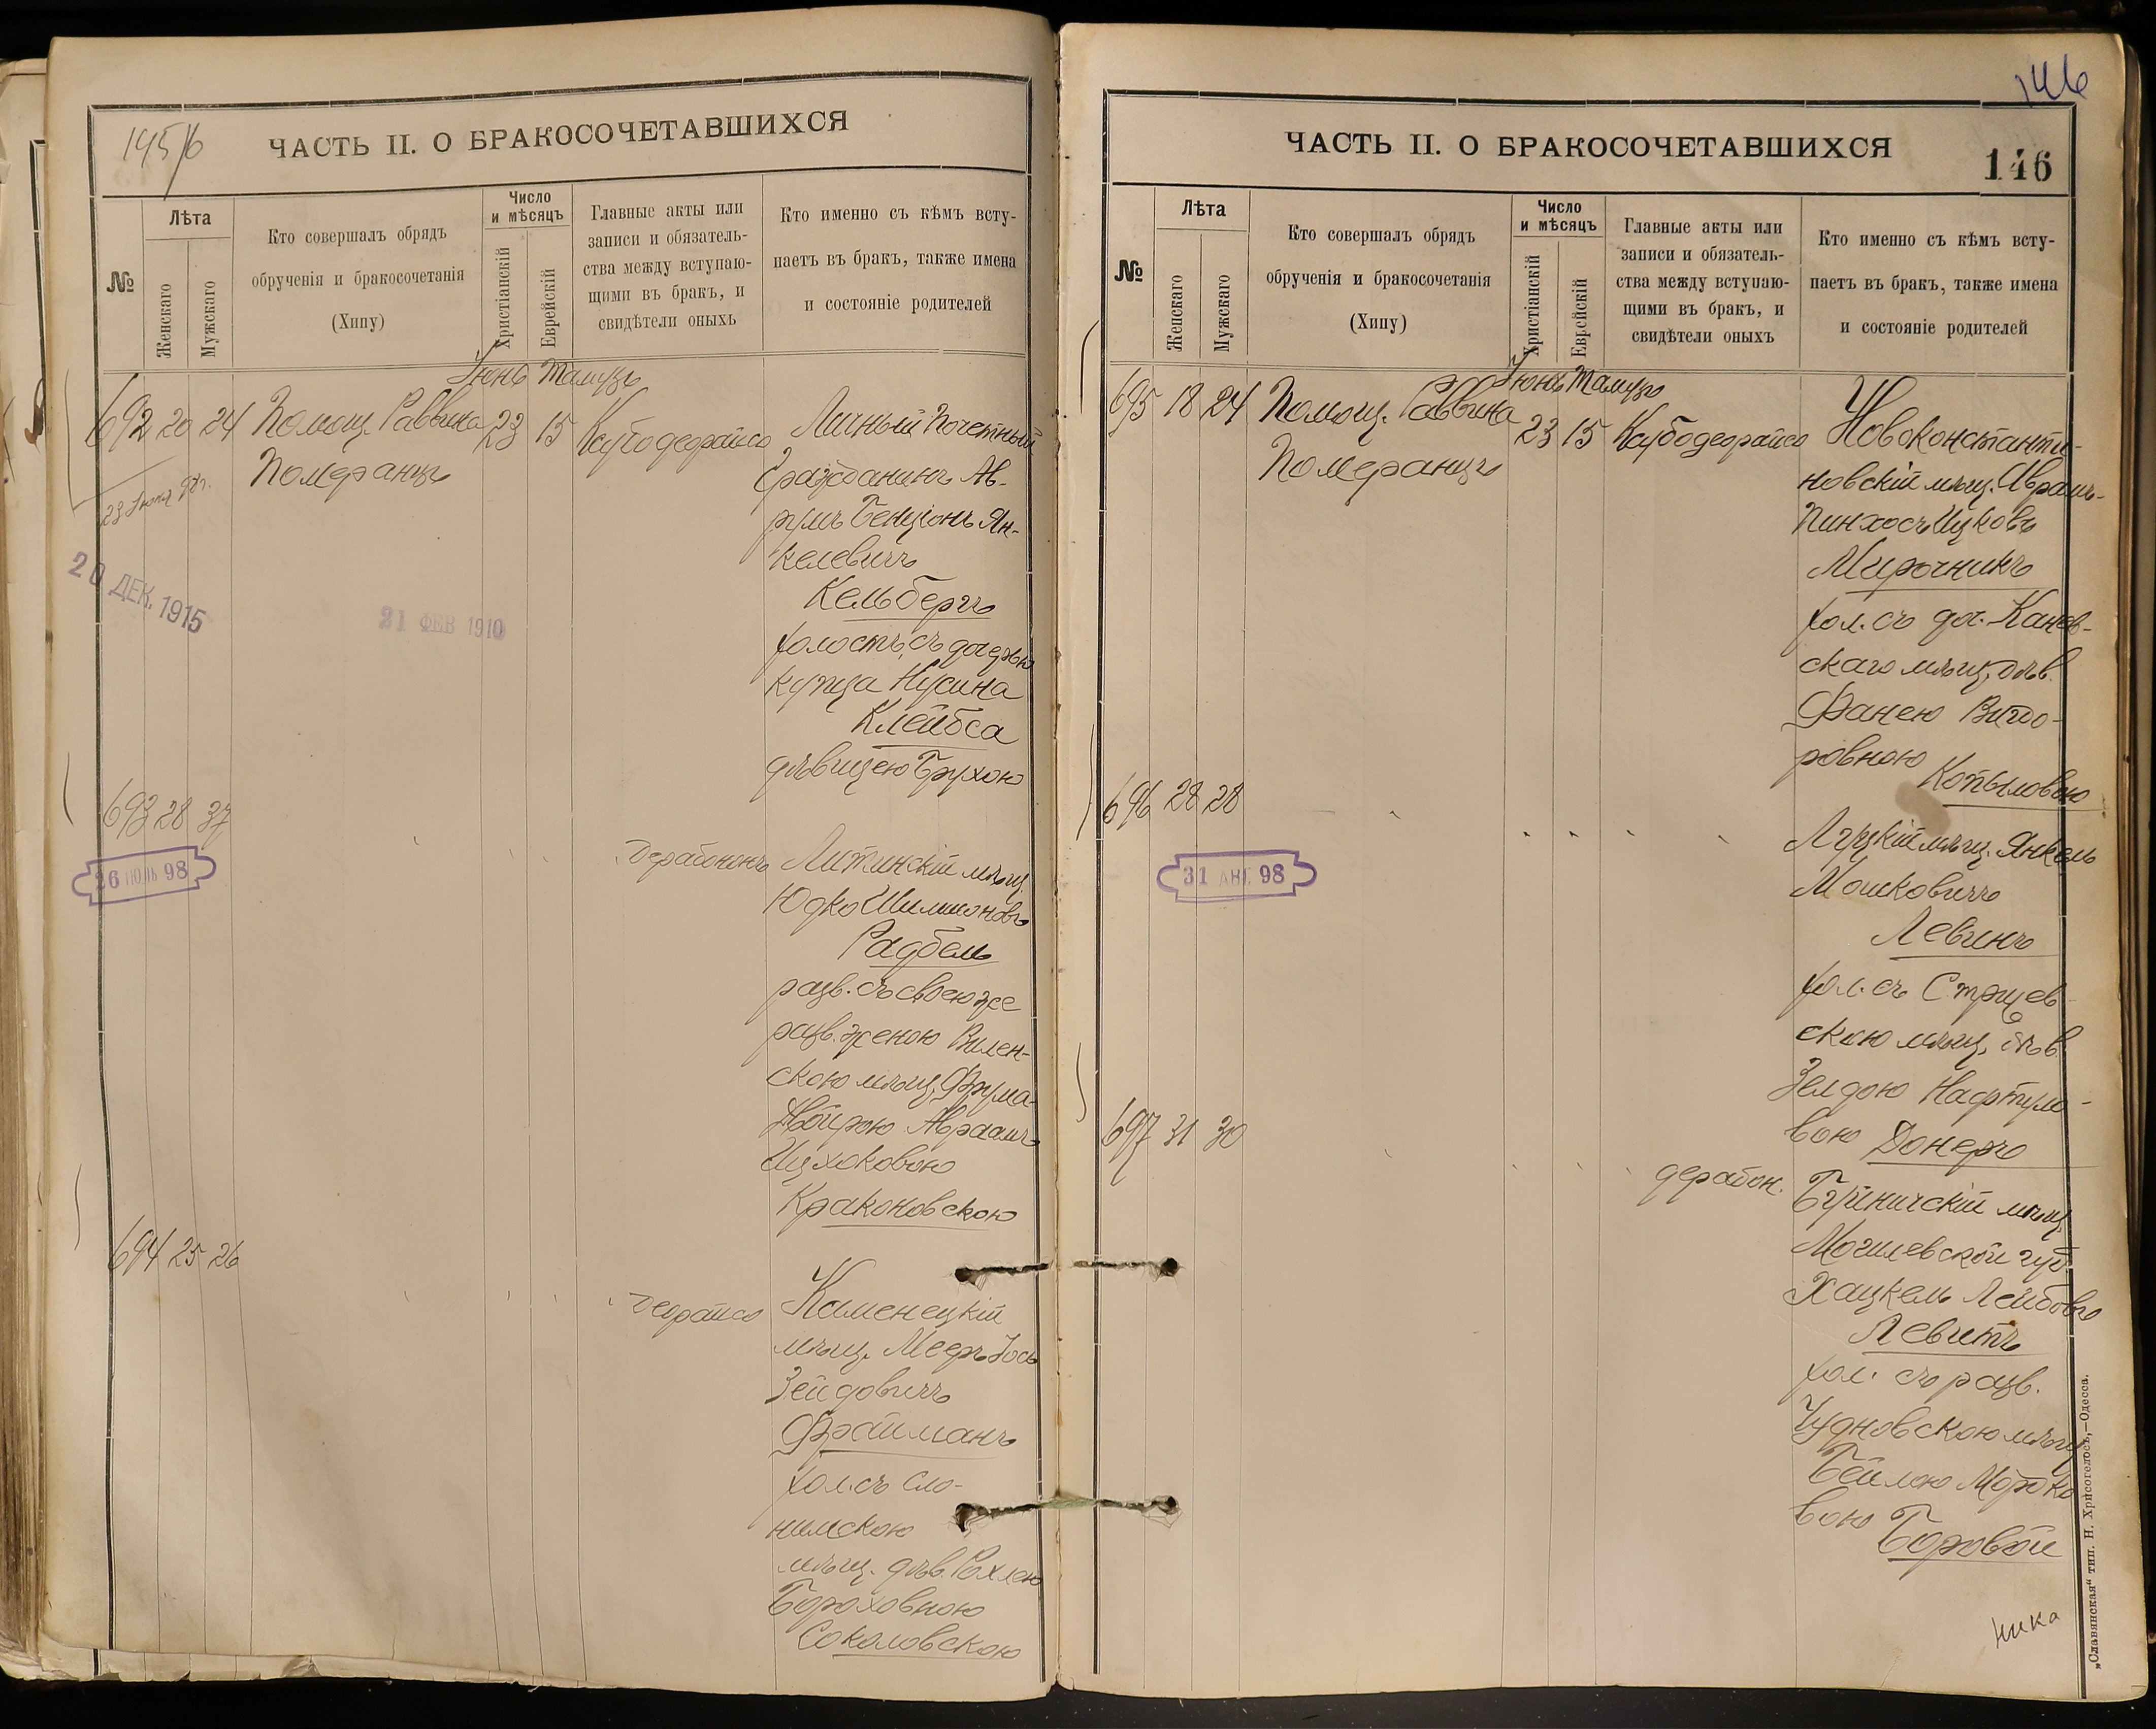 145/б
ЧАСТЬ II. О БРАКОСОЧЕТАВШИХСЯ
№
Лѣта
Женскаго
Мужскаго
Кто совершалъ обрядъ
обрученія и бракосочетанія
(Хипу)
Число
и мѣсяцъ
Христіанскій
Еврейскій
Главные акты или
записи и обязатель-
ства между вступаю-
щими въ бракъ, и
свидѣтели оныхъ
Кто именно съ кѣмъ всту-
паетъ въ бракъ, также имена
и состояніе родителей
Іюнь Тамузъ
692 20 24 Помощ. Раввина 23 15 Ксубо деорайсо
Померанцъ
Личный Почетный
Гражданинъ Ав-
румъ Бенціонъ Ян-
келевичъ
Кельбергъ
холостъ, съ дочерью
купца Нусина
Клейбса
дѣвицею Брухою
20 ДЕК. 1915
21 ФЕВ 1910
693 28 37
26 ІЮЛЬ 98
дерабононъ
Литинскій мѣщ.
Юдко Шимоновъ
Радбель
разв. съ своею же
разв. женою Вилен-
скою мѣщ. Фрума-
Двойрою Авраамъ
Ицхоковою
Краконовскою
694 25 26
деорайсо
Каменецкій
мѣщ. Мееръ Іось
Зейдовичъ
Фрайманъ
хол. съ Сло-
нимскою
мѣщ. дѣв. Рохлею
Бороховною
Соколовскою
146
ЧАСТЬ II. О БРАКОСОЧЕТАВШИХСЯ
146
№
Лѣта
Женскаго
Мужскаго
Кто совершалъ обрядъ
обрученія и бракосочетанія
(Хипу)
Число
и мѣсяцъ
Христіанскій
Еврейскій
Главные акты или
записи и обязатель-
ства между вступаю-
щими въ бракъ, и
свидѣтели оныхъ
Кто именно съ кѣмъ всту-
паетъ въ бракъ, также имена
и состояніе родителей
Іюнь Тамузъ
695 18 24 Помощ. Раввина 23 15 Ксубо деорайсо
Померанцъ
Новоконстанти-
новскій мѣщ. Авраамъ-
Пинхосъ Ицковъ
Мирочникъ
хол. съ доч. Канев-
скаго мѣщ. дѣв.
Фанею Вигдо-
ровною
Копыловою
696 28 28
31 АВГ. 98
Луцкій мѣщ. Янкель
Мошковичъ
Левинъ
хол. съ
скою мѣщ. дѣв.
Зелдою Нафтуло-
вою Донеръ
697 31 30
дерабон.
мѣщ.
Могилевской губ.
Хацкель Лейбовъ
Левитъ
хол. съ разв.
Чудновскою мѣщ.
Бейлою Мортко
вою Боровой
ника
„Славянская“ тип. Н. Хрисогелосъ,—Одесса.